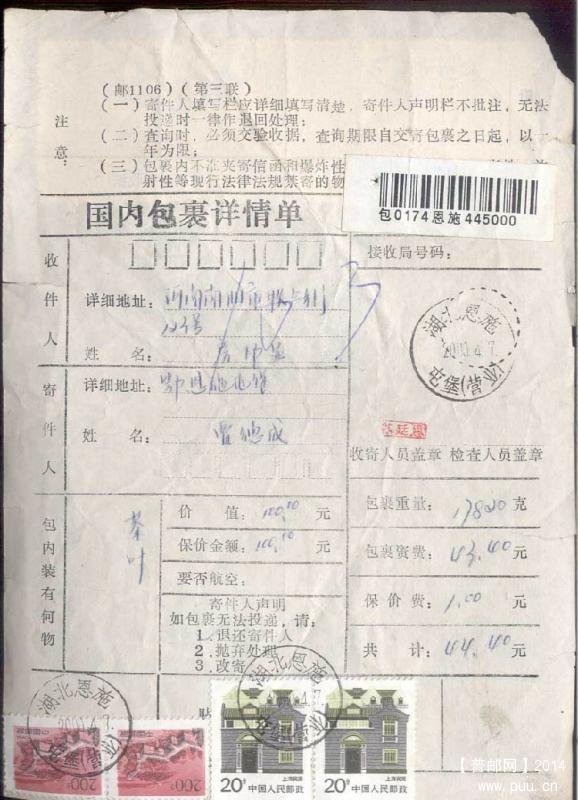 (邮1106)(第三联)
注意:
(一)寄件人填写栏应详细填写清楚,寄件人声明栏不批注,无法
投递时一律作退回处理;
(二)查询时,必须交验收据,查询期限自交寄包裹之日起,以一
年为限;
(三)包裹内不准夹寄信函和爆炸性
射性等现行法律法规禁寄的物
包0174恩施445000
国内包裹详情单
接收局号码:
收件人
详细地址:
123号
姓 名:
寄件人
详细地址:
姓 名:
湖北恩施
2000.4.7
屯堡(营)
收寄人员盖章 检查人员盖章
包内装有何物
茶叶
价 值:100.00元
保价金额:100.00元
要否航空:
寄件人声明
如包裹无法投递,请:
1.退还寄件人
2.抛弃处理
3.改寄
包裹重量:17820克
包裹资费:43.40元
保 价 费:1.00元
共 计:44.40元
贴
湖北恩施
2000.4.7
湖北恩施
4.7
200
200
20分 中国人民邮政
上海民居
20分 中国人民邮政
上海民居
【普邮网】2014
www.puu.cn